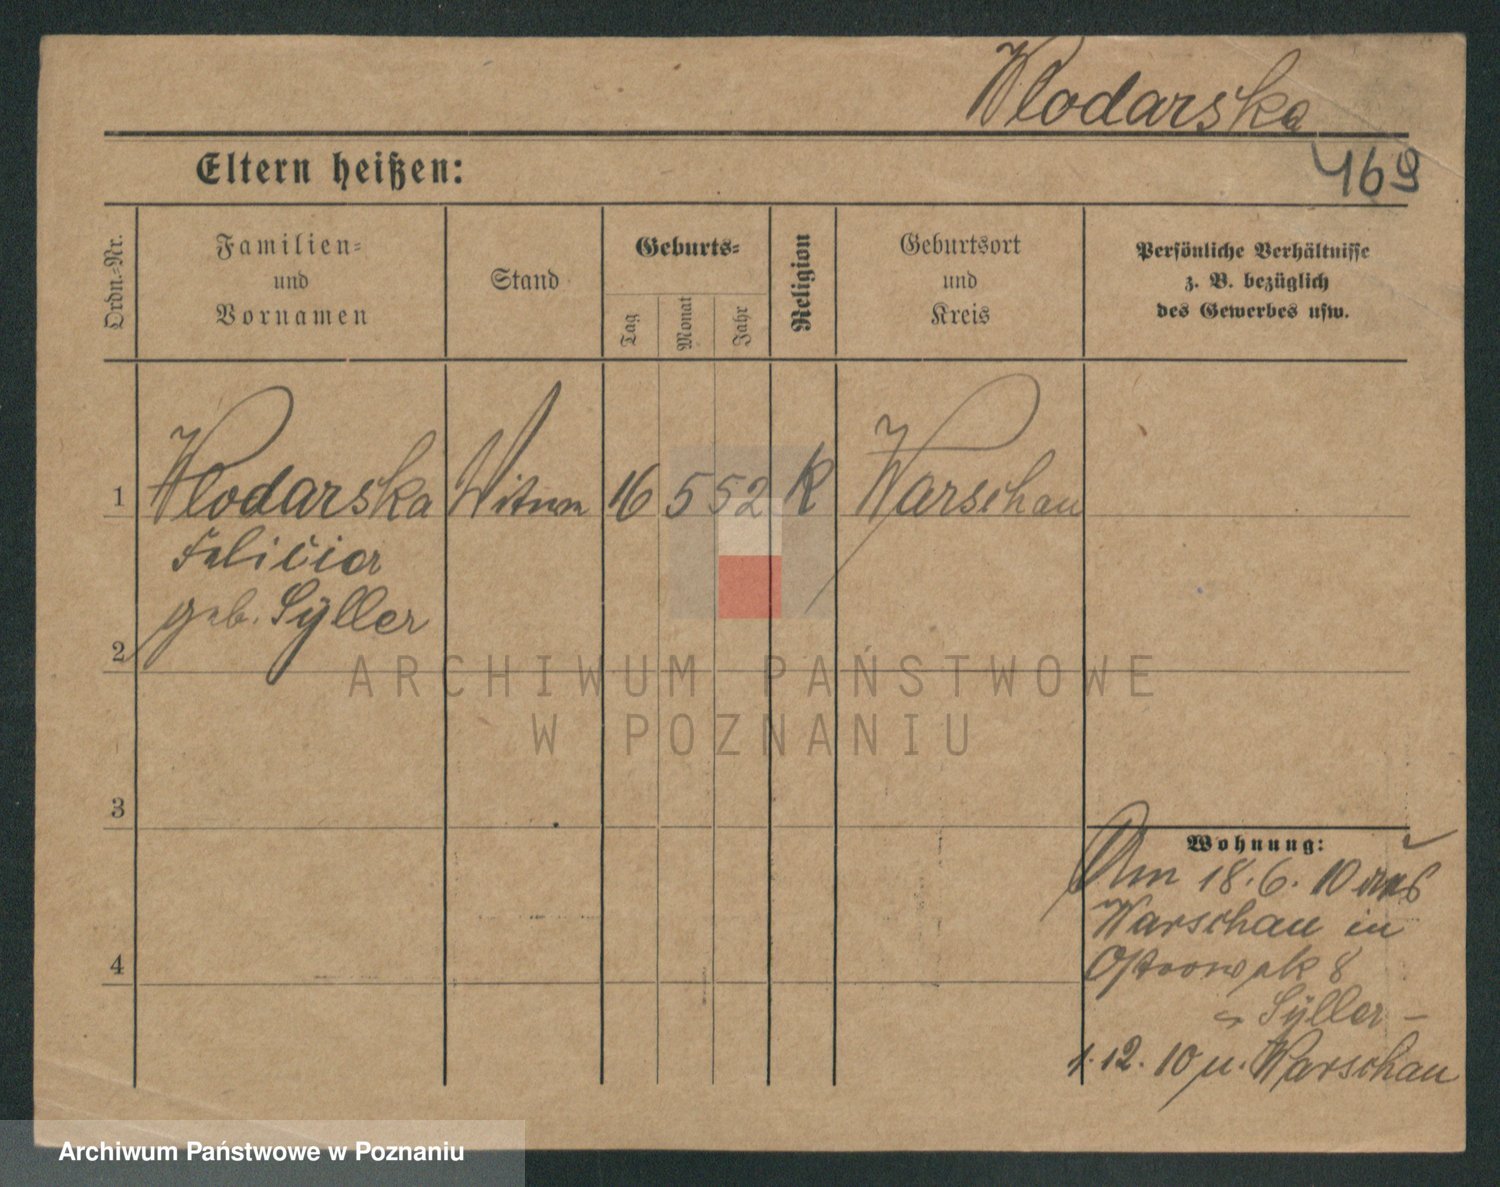 Wlodarska
Eltern heißen:
469
Ordn.-Nr.
Familien-
und
Vornamen
Stand
Geburts-
Tag
Monat
Jahr
Religion
Geburtsort
und
Kreis
Persönliche Verhältnisse
z. B. bezüglich
des Gewerbes usw.
1 Wlodarska Witwe 16 5 52 K Warschau
Felicia
geb. Syller
2
ARCHIWUM PAŃSTWOWE
W POZNANIU
3
Wohnung:
Am 18.6.10 aus
Warschau in
4
8
Syller -
1.12.10 n. Warschau
Archiwum Państwowe w Poznaniu